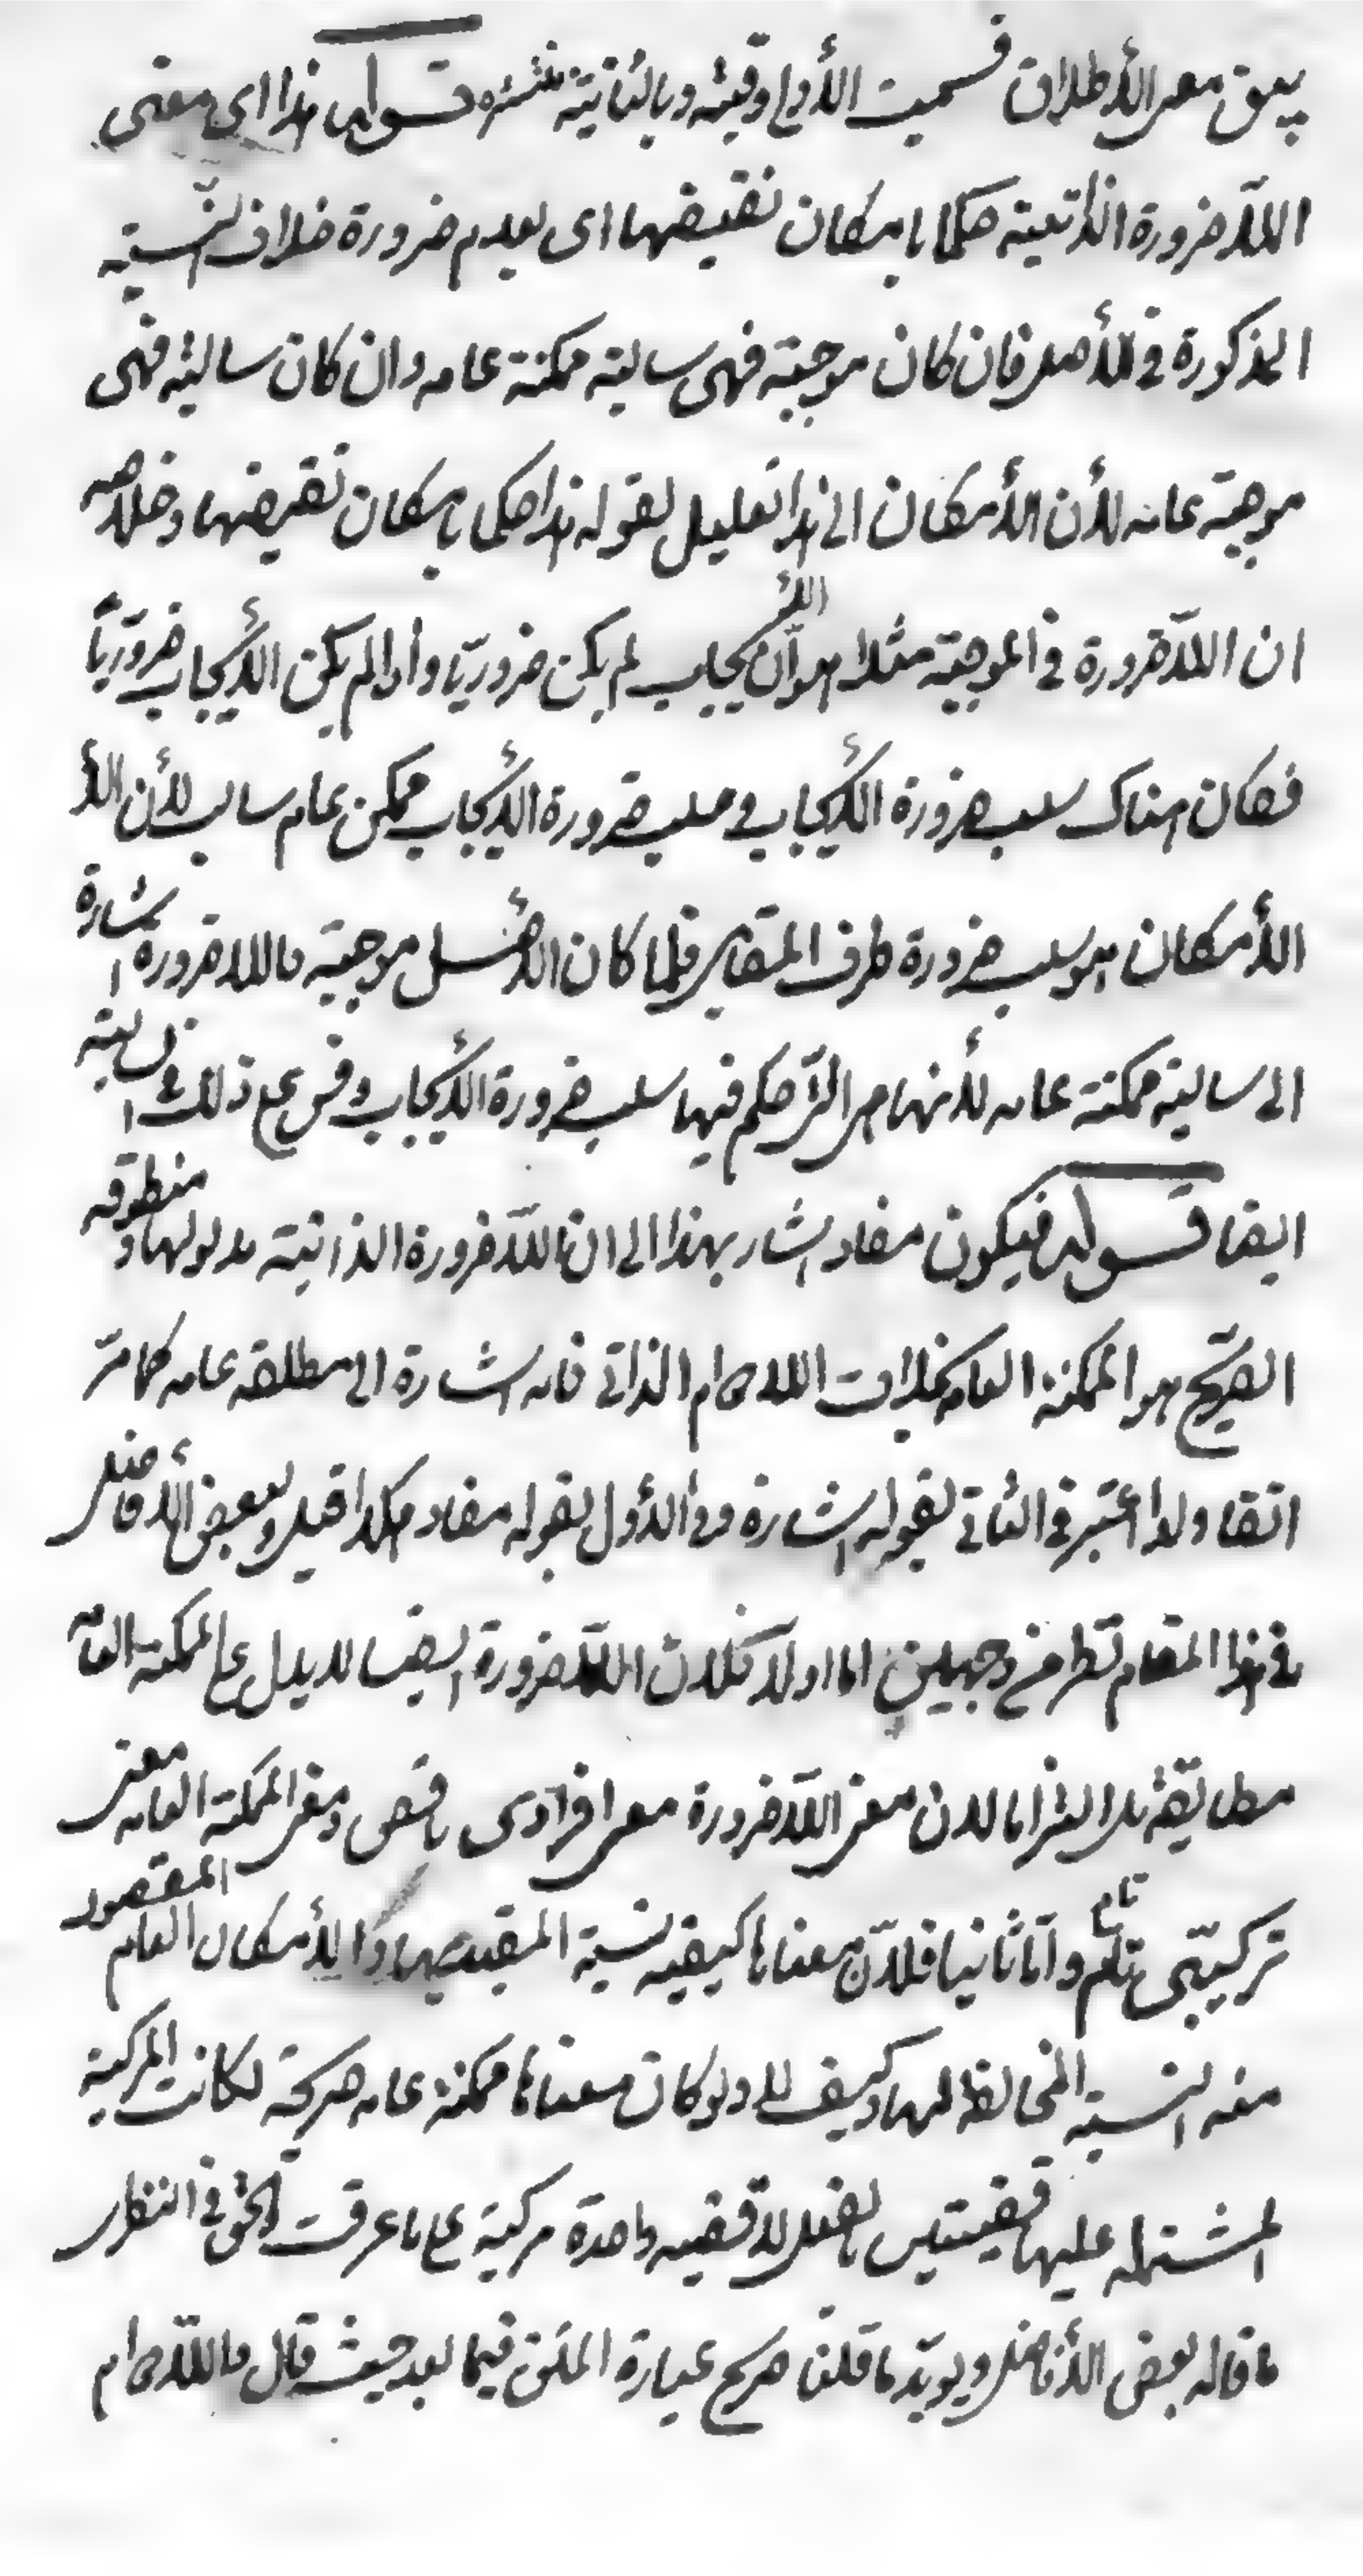 يبق معى الأطلاق فسميت الأولى وقتيته وبالثانية منتشره قوله هذا اى معنى
اللآضرورة الذاتية حكما بامكان نقيضها اى بعدم ضرورة خلاف النسبة
المذكورة في الأصل فان كان موجبة فهى سالبة ممكنة عامه وان كان سالبة فهى
موجبة عامه لأن الأمكان الى هذا تعليل لقوله هذا حكى بامكان نقيضها وخلاصه
ان اللآضرورة في الموجبة مثلا هو ان الأيجاب لم يكن ضروريّا واذا لم يكن الأيجاب ضروريّاً
فكان هناك سلب ضرورة الأيجاب و سلب ضرورة الأيجاب ممكن عام سالب لأن الأ
الأمكان هو سلب ضرورة طرف المقابل فلما كان الأصل موجبة فاللاضرورة اشارة
الى سالبة ممكنة عامه لأنها هى التى حكم فيها سلب ضرورة الأيجاب وقس على ذلك السالبة
ايضا قوله فيكون مفاد اشار بهذا الى ان اللآضرورة الذاتية مدلولها ومنطوقه
الصريح هو الممكنة العامه بخلاف اللادوام الذاتى فانه اشارة الى مطلقه عامه كما مرّ
انفا ولذا اعتبر في الثانى بقوله اشارة وفي الأول بقوله مفاد هكذا قيل وبعض الأفاضل
في هذا المقام نظر من وجهين اما اولا فلان اللآضرورة ايضا لا يدل على الممكنة العامّه
مطابقة بل التزاما لان معنى اللآضرورة معى افرادى ناقص ومعنى الممكنة العامه معنى
تركيبّى تام وامّا ثانيا فلأن معناها كيفيه نسبة المقيد بها والأمكان العام المقصود
منه النسبة المخالفة لها وكيف لا ولو كان معناها ممكنة عامه صريحة لكانت المركبة
المشتمله عليها قضيتين بالفعل لا قضيه واحدة مركبة على ما عرفت والحق في النظر
ما قاله بعض الأفاضل ويويّد ما قلنا صريح عبارة المتن فيما بعد حيث قال فاللادوام